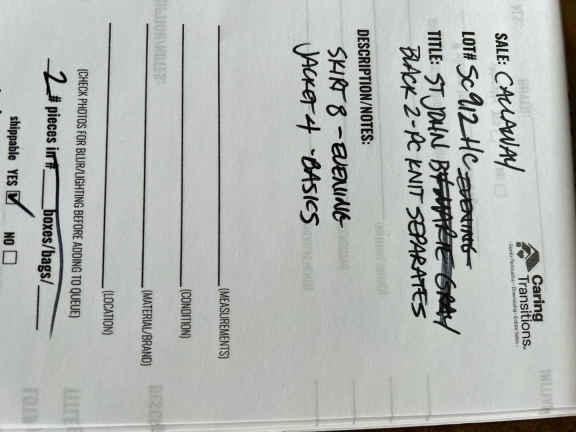 Caring
Transitions.
SALE: CALLAWAY
LOT# SC912 HC EVENING
TITLE: ST JOHN BY MARIE GRAY
BLACK 2-PC KNIT SEPARATES
DESCRIPTION/NOTES:
SKIRT 8 - EVENING
JACKET 4 - BASICS
(MEASUREMENTS)
(CONDITION)
(MATERIAL/BRAND)
(LOCATION)
(CHECK PHOTOS FOR BLUR/LIGHTING BEFORE ADDING TO QUEUE)
2 # pieces in # boxes/bags/
shippable YES NO